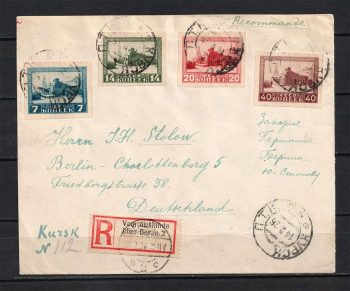 Recommandé
7 КОПЕЕК 7
14 КОПЕЕК 14
20 КОПЕЕК 20
40 КОПЕЕК 40
Заказное
Германия
Берлин
Herrn J.H. Stolow.
Berlin-Charlottenburg 5
Friedbergstrasse 38.
Deutschland
R
Vom Auslande
über Berlin 2
Kursk
N 112
КУРСК